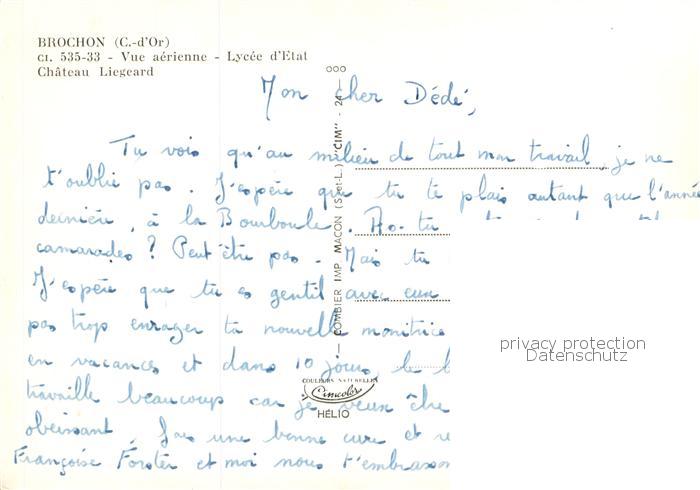 BROCHON (C.-d'Or)
CI. 535-33 - Vue aérienne - Lycée d'Etat
Château Liegeard
Mon cher Dédé,
Tu vois qu'au milieu de tout mon travail, je ne
t'oublie pas. J'espère que tu te plais autant que l'année
dernière, à la Bourboule. As-tu
camarades ? Peut être pas. Mais tu
J'espère que tu es gentil avec eux
pas trop enrager ta nouvelle monitrice
en vacances et dans 10 jours, le b
travaille beaucoup car je veux être
obéissant, fais une bonne cure et
Françoise Förster et moi nous t'embrasson
COMBIER IMP MACON (S.-et-L.) "CIM" - 24
COULEURS NATURELLES
Cimcolor
HÉLIO
privacy protection
Datenschutz